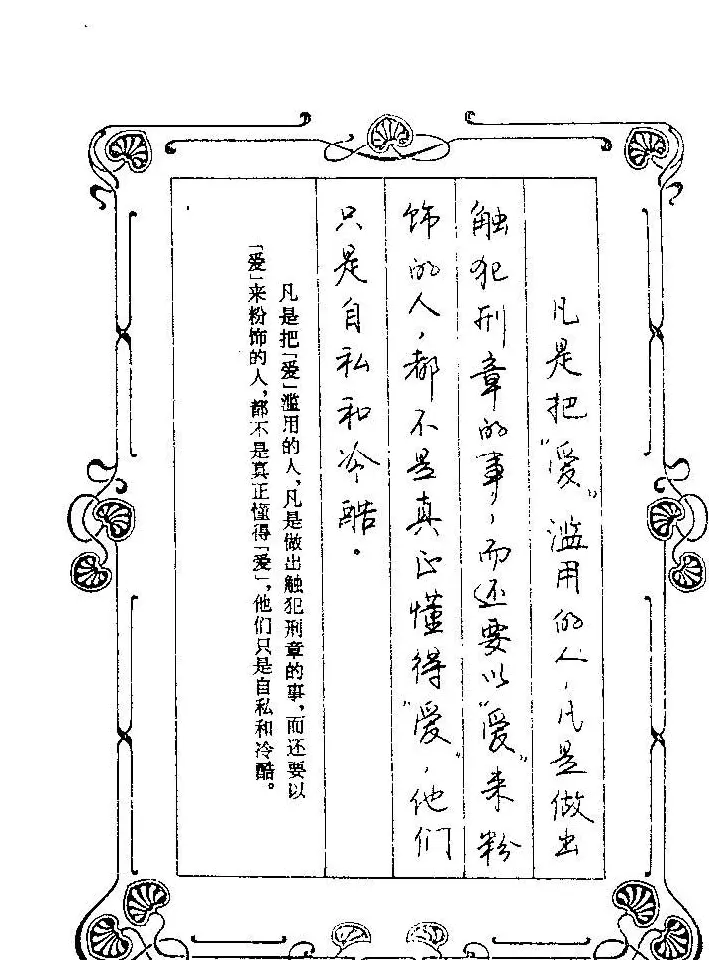 凡是把“爱”滥用的人，凡是做出
触犯刑章的事，而还要以“爱”来粉
饰的人，都不是真正懂得“爱”，他们
只是自私和冷酷。
凡是把「爱」滥用的人，凡是做出触犯刑章的事，而还要以
「爱」来粉饰的人，都不是真正懂得「爱」，他们只是自私和冷酷。